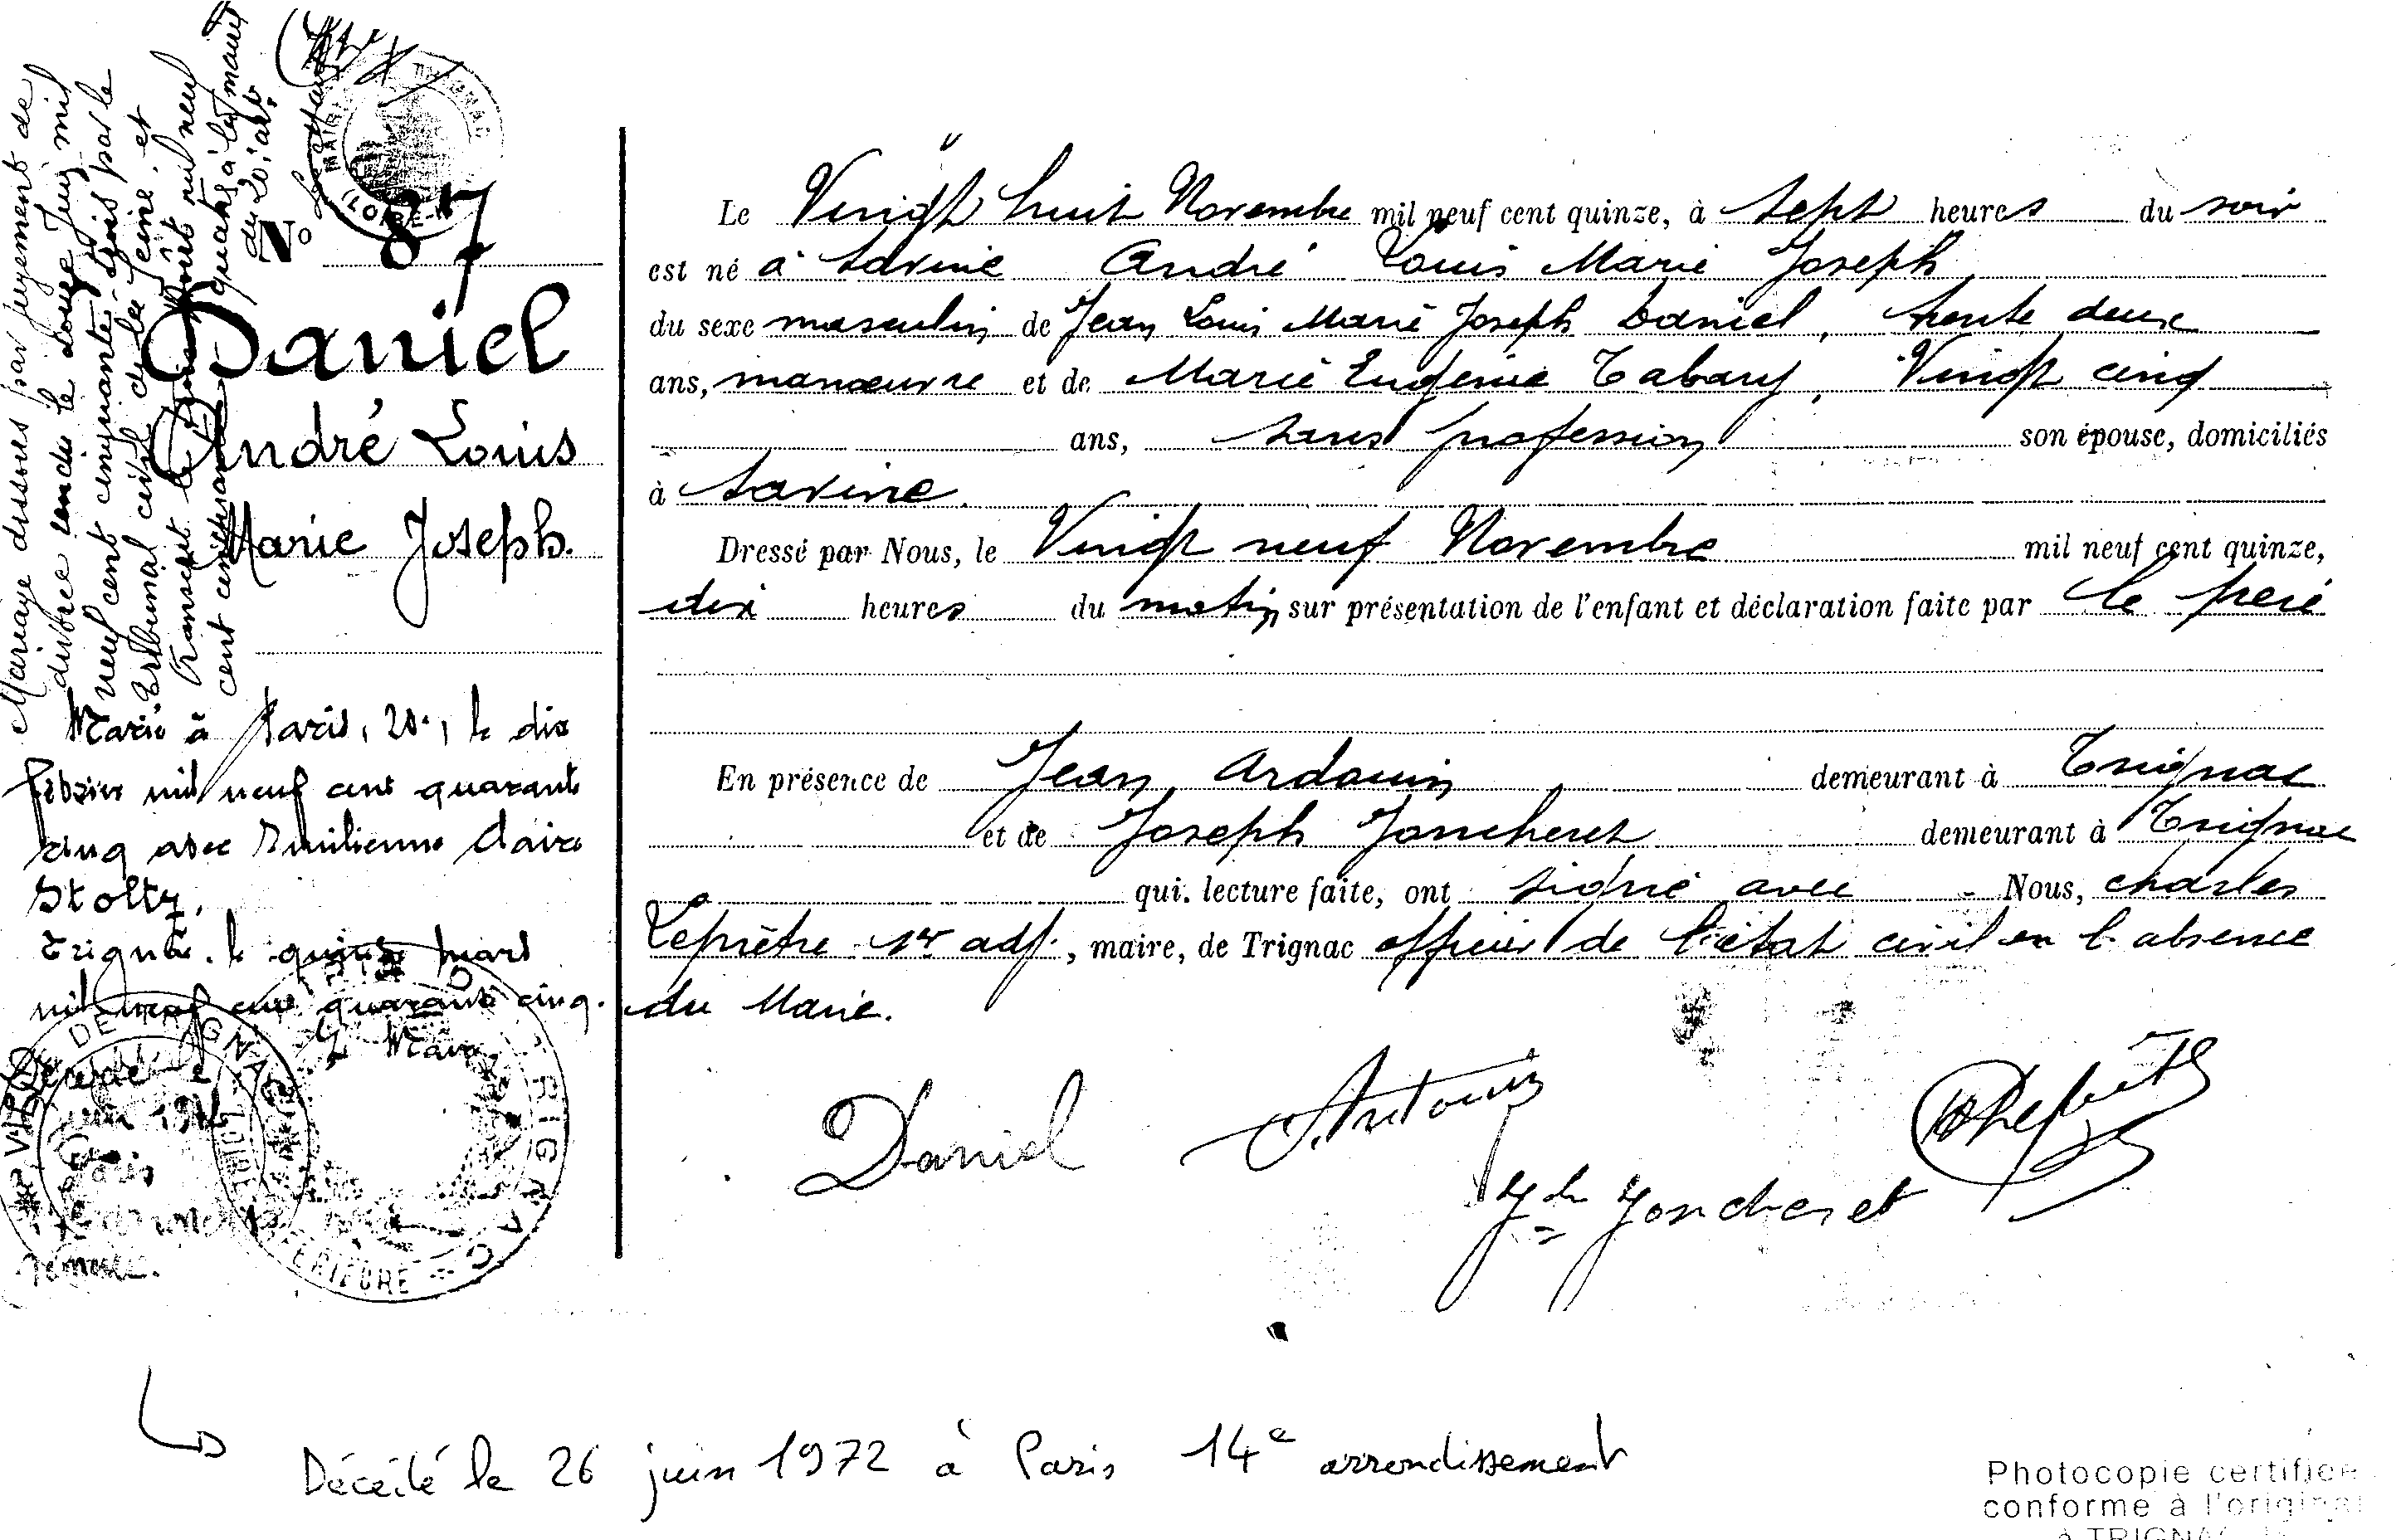 Mariage dissous par jugement de
divorce rendu le douze Juin mil
neuf cent cinquante-trois par le
Tribunal civil de la Seine. et
Transcrit le août mil neuf
cent cinquante quatre à la mairie
du 20e arrt.
N° 87
Daniel
André Louis
Marie Joseph.
Marié à Paris, 20e, le dix
février mil neuf cent quarante
cinq avec Emilienne Claire
Stoltz.
Trignac. le quinze mars
mil neuf cent quarante cinq.
Le Maire
Décédé le
juin 1972
Paris
Le Vingt huit Novembre mil neuf cent quinze, à sept heures du soir
est né à Savine André Louis Marie Joseph
du sexe masculin de Jean Louis Marie Joseph Daniel, trente deux
ans, manœuvre et de Marie Eugénie Tabary, Vingt cinq
ans, sans profession son épouse, domiciliés
à Savine.
Dressé par Nous, le Vingt neuf Novembre mil neuf cent quinze,
dix heures du matin sur présentation de l'enfant et déclaration faite par le père
En présence de Jean Ardouin demeurant à Trignac
et de Joseph Joncheret demeurant à Trignac
qui. lecture faite, ont signé avec Nous, charles
Leprêtre 1er adj., maire, de Trignac officier de l'état civil en l'absence
du Maire.
Daniel
J. Ardouin
Jh Joncheret
Décédé le 26 juin 1972 à Paris 14e arrondissement
Photocopie certifiée
conforme à l'original
à TRIGNAC